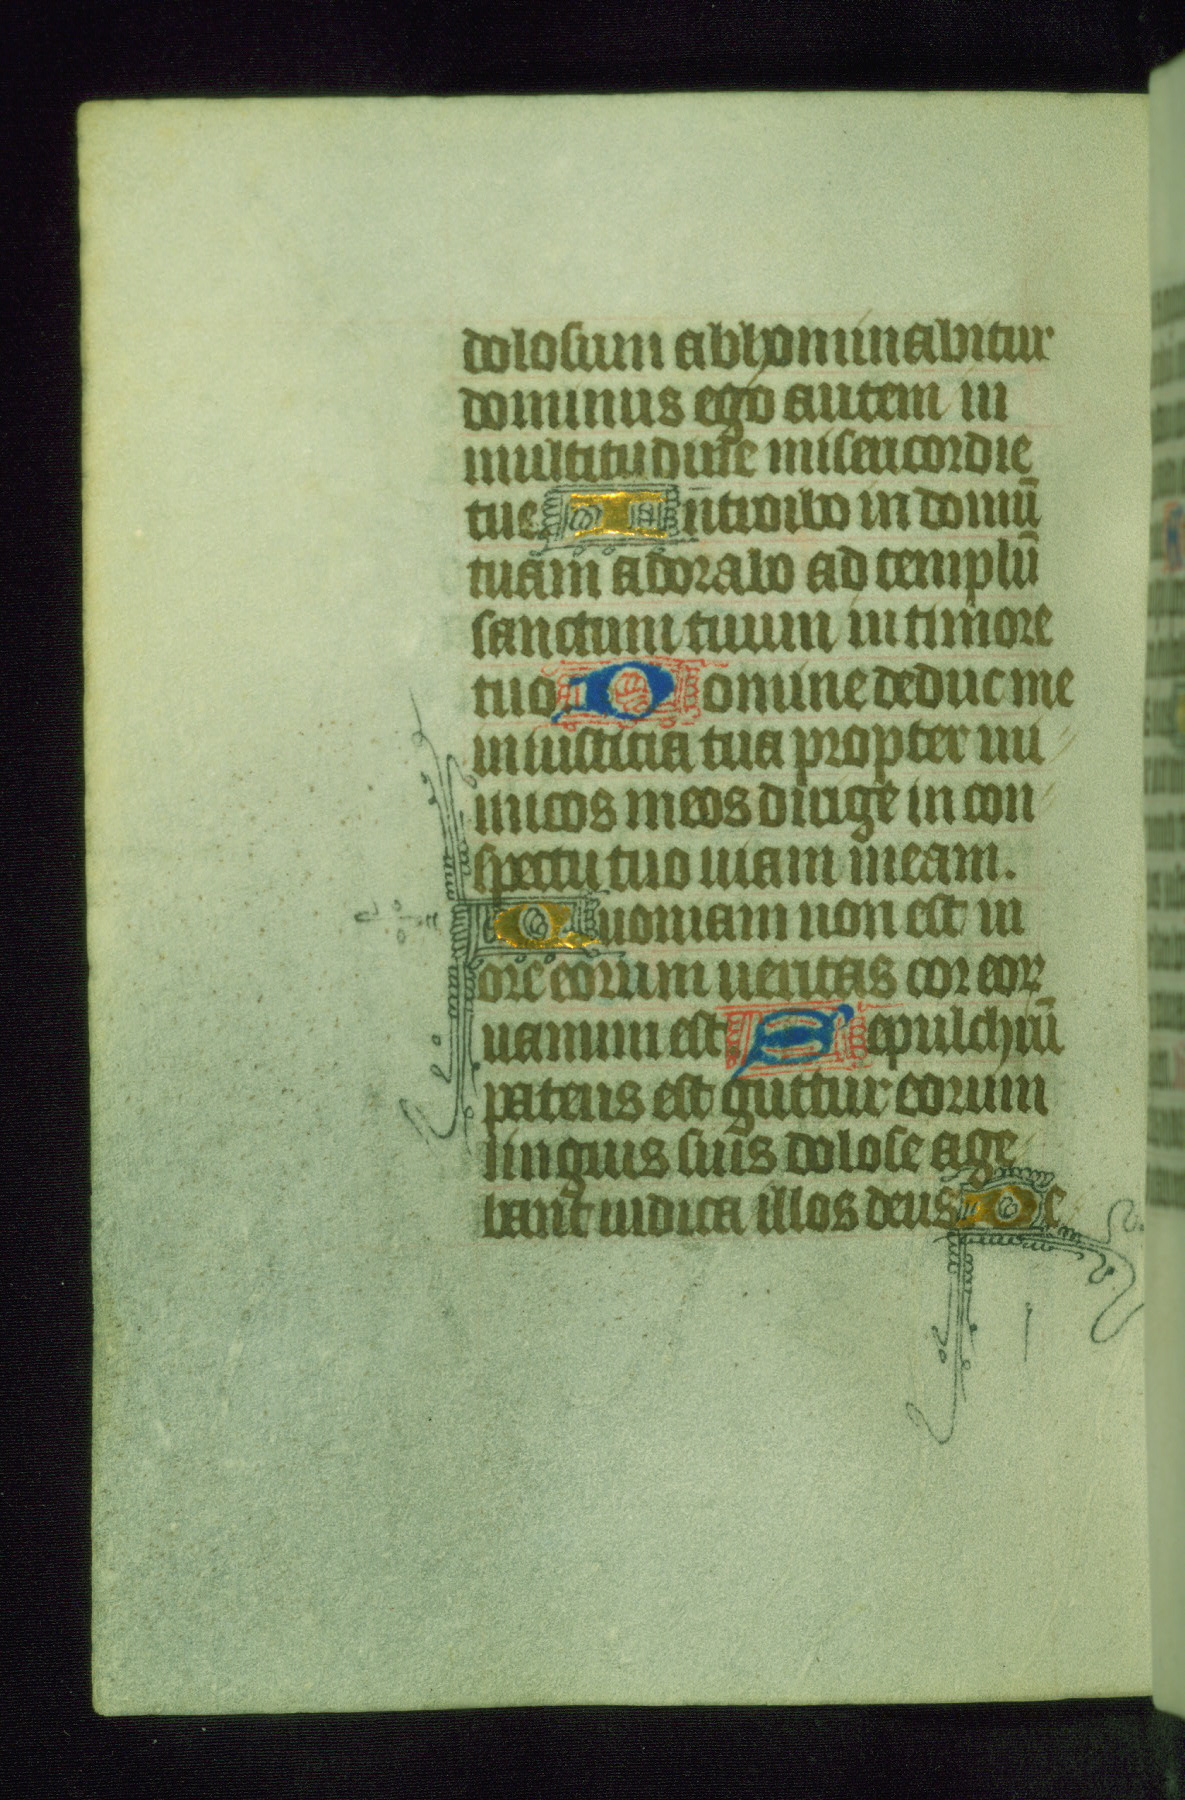 dolosum abhominabitur
dominus ego autem in
multitudine misericordie
tue Introibo in domū
tuam adorabo ad templū
sanctum tuum in timore
tuo Domine deduc me
in iusticia tua propter ini
micos meos dirige in con
spectu tuo uiam meam.
Quoniam non est in
ore eorum ueritas cor eoꝝ
uanum est Sepulchrū
patens est guttur eorum
linguis suis dolose age
bant iudica illos deus De